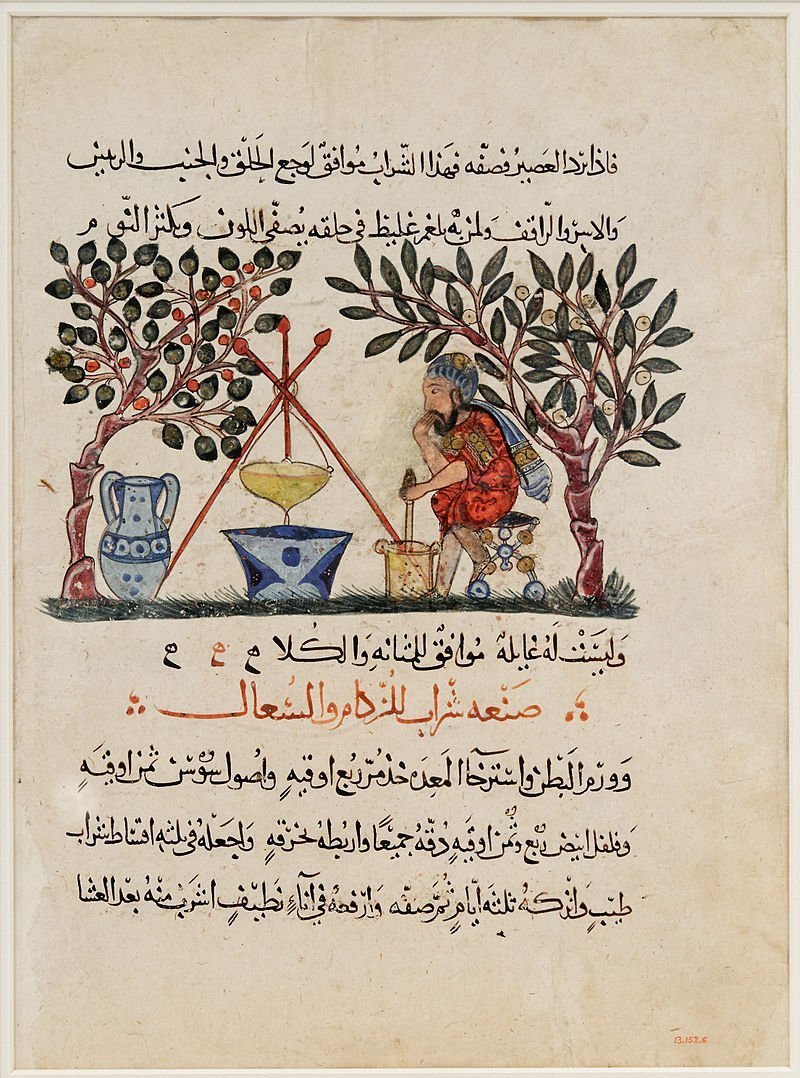 فاذا برد العصير فصفّه فهذا الشّراب موافقٌ لوجع الحَلْق والجنب والريتين
والاسر والرّاقف ولمن به بلغم غليظ في حلقه يُصفّي اللون ويكثر النّوم
وليسَتْ لهُ غايله موافقٌ للمثانه والكُلا ح ح ح
صنعه شراب للزّكام والسُعال
وَورم البَطن واسترخا المعِده خذ مرّ ربع اوقيهٍ واصُول سوُسن ثمن اوقيهٍ
وفلفل ابيض ربع وثُمن اوقيهٍ دُقّه جميعًا واربطهُ بخرقهٍ واجعلهُ في ثلثه اقساط شراب
طيّبٍ واتركهُ ثلثه ايّامٍ ثم صفّه وارفعهُ في اناءٍ نظيفٍ اشرب منهُ بعد العشا
13.152.6